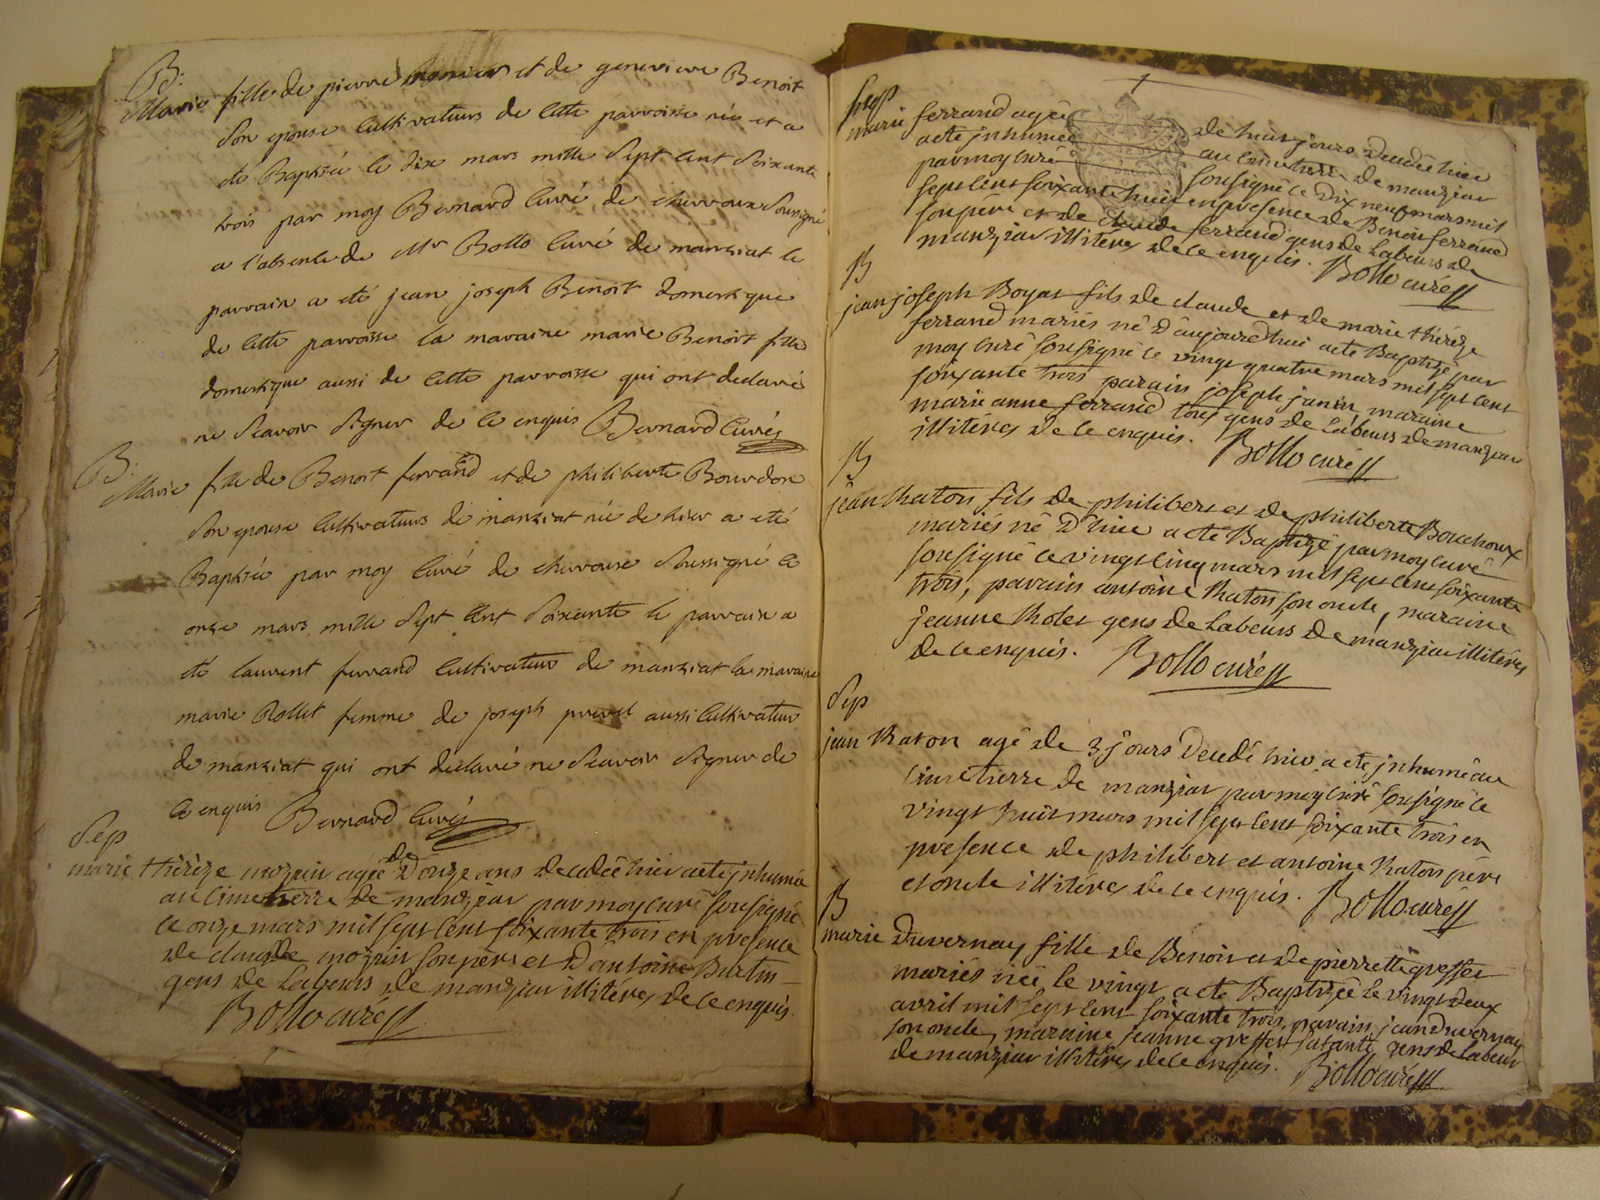 B:
Marie fille de pierre et de genevieve Benoit
Son epouse Cultivateurs de Cette parroisse née et a
eté Baptisée le dix mars mille Sept Cent Soixante
trois par moy Bernard Curé de chevroux Soussigné
a l'absence de Mr Bollo Curé de manziat le
parrain a eté jean joseph Benoit domestique
de Cette parroisse la maraine marie Benoit fille
domestique aussi de Cette parroisse qui ont declaré
ne Scavoir Signer de ce enquis Bernard Curé
B:
Marie fille de Benoit ferrand et de philiberte Bourdon
Son epouse Cultivateurs de manziat née de hier a eté
Baptisée par moy Curé de chevroux Soussigné le
onze mars mille Sept Cent Soixante le parrain a
eté laurent ferrand Cultivateur de manziat la maraine
marie Rollet femme de joseph aussi Cultivateur
de manziat qui ont declaré ne Scavoir Signer de
ce enquis Bernard Curé
Sep
marie thérèze mozuin agée de Douze ans decedée hier a eté jnhumée
au Cimetierre de manziat par moy curé sousigné
ce onze mars mil sept cent soixante trois en presence
de claude mozuin son père et D'antoine Burtin
gens de Labeurs de manziat illitérés de ce enquis.
Bollo curé
Sep
marie ferrand agée de huit jours decedée hier
a eté jnhumée au Cimetierre de manziat
par moy curé sousigné ce dix neuf mars mil
sept cent soixante trois en presence de Benoit ferrand
son père et de claude ferrand gens de Labeurs de
manziat illitérés de ce enquis. Bollo curé
B
jean joseph Boyat fils de claude et de marie thérèze
ferrand mariés né d'aujourd'hui a eté Baptizé par
moy curé sousigné ce vingt quatre mars mil sept cent
soixante trois parain joseph janin maraine
marie anne ferrand tous gens de Labeurs de manziat
illitérés de ce enquis. Bollo curé
B
jean Raton fils de philibert et de philiberte Bouchoux
mariés né D'hier a eté Baptizé par moy curé
sousigné ce vingt cinq mars mil sept cent soixante
trois, parain antoine Raton son oncle, maraine
jeanne Rolet gens de Labeurs de manziat illitérés
de ce enquis. Bollo curé
Sep
jean Raton agé de 3 jours decedé hier a eté jnhumé au
Cimetierre de manziat par moy curé sousigné ce
vingt huit mars mil sept cent soixante trois en
presence de philibert et antoine Raton père
et oncle illitérés de ce enquis. Bollo curé
B
marie Duvernay fille de Benoit et de pierrette greffet
mariés née le vingt a eté Baptizée le vingt deux
avril mil sept cent soixante trois, parain jean duvernay
son oncle, maraine jeanne greffet sa tante gens de Labeur
de manziat illitérés de ce enquis. Bollo curé